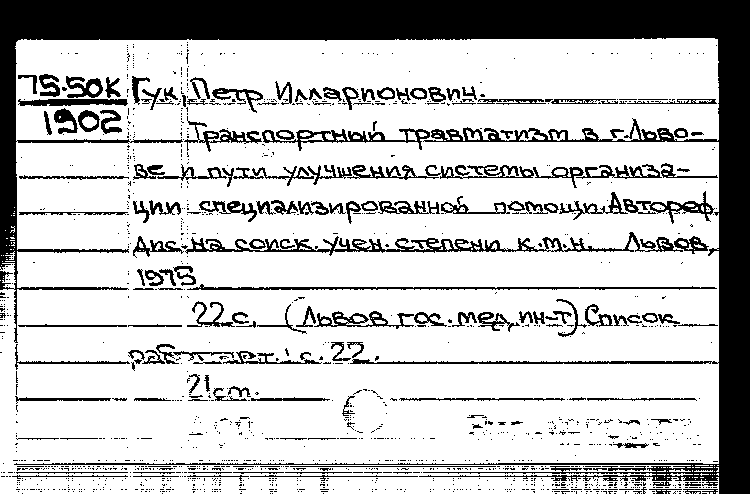 75-50К Гук, Петр Илларионович.
1902
Транспортный травматизм в г.Льво-
ве и пути улучшения системы организа-
ции специализированной помощи. Автореф.
дис. на соиск. учен. степени к.м.н. Львов,
1975.
22 с. (Львов. гос. мед. ин-т) Список
работ авт.: с. 22.
21см.